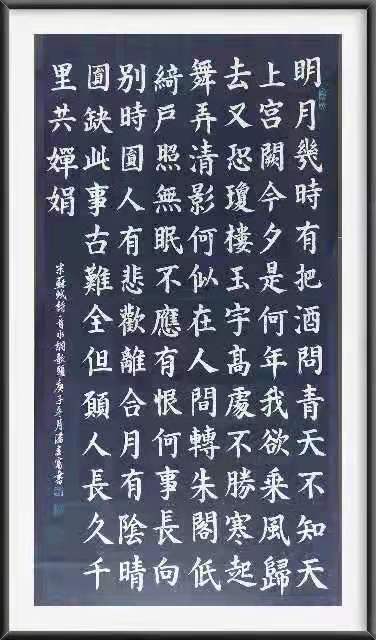 明月幾時有把酒問青天不知天
上宮闕今夕是何年我欲乘風歸
去又恐瓊樓玉宇高處不勝寒起
舞弄清影何似在人間轉朱閣低
綺戶照無眠不應有恨何事長向
別時圓人有悲歡離合月有陰晴
圓缺此事古難全但願人長久千
里共嬋娟
宋蘇軾詩一首水調歌頭庚子年月潘富書